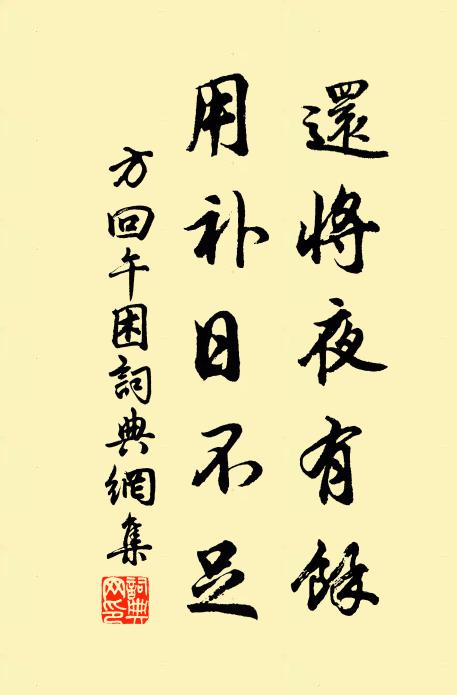 還將夜有餘
用补日不足
方回午困詞典網集
詞典网印